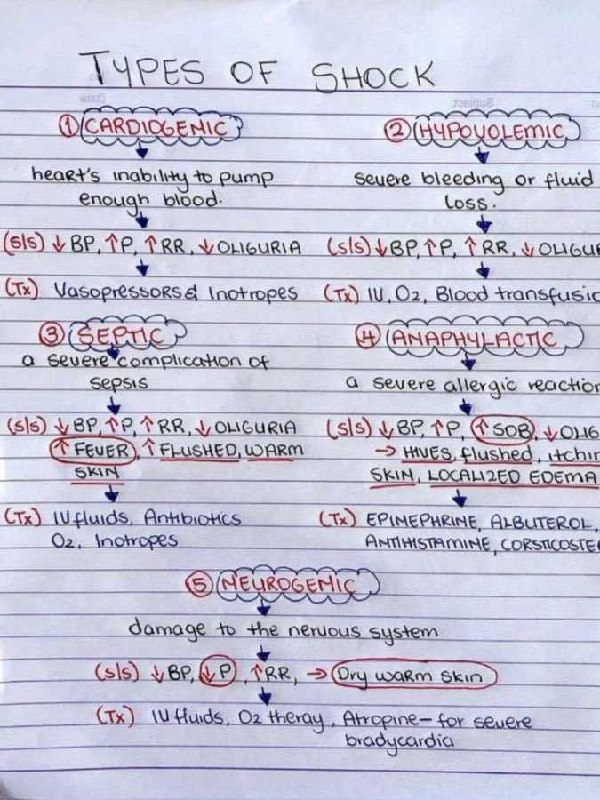 TYPES OF SHOCK
① CARDIOGENIC
heart's inability to pump
enough blood.
(S/S) ↓ BP, ↑ P, ↑ RR, ↓ OLIGURIA
(Tx) Vasopressors & Inotropes
② HYPOVOLEMIC
severe bleeding or fluid
loss.
(S/S) ↓ BP, ↑ P, ↑ RR, ↓ OLIGUR
(Tx) IV, O2, Blood transfusio
③ SEPTIC
a severe complication of
sepsis
(S/S) ↓ BP, ↑ P, ↑ RR, ↓ OLIGURIA
↑ FEVER, ↑ FLUSHED, WARM
SKIN
(Tx) IV fluids, Antibiotics
O2, Inotropes
④ ANAPHYLACTIC
a severe allergic reaction
(S/S) ↓ BP, ↑ P, ↑ SOB, ↓ OLIG
→ HIVES, flushed, itchin
SKIN, LOCALIZED EDEMA
(Tx) EPINEPHRINE, ALBUTEROL,
ANTIHISTAMINE, CORSTICOSTE
⑤ NEUROGENIC
damage to the nervous system
(S/S) ↓ BP, ↓ P, ↑ RR, → Dry warm skin
(Tx) IV fluids, O2 theray, Atropine – for severe
bradycardia